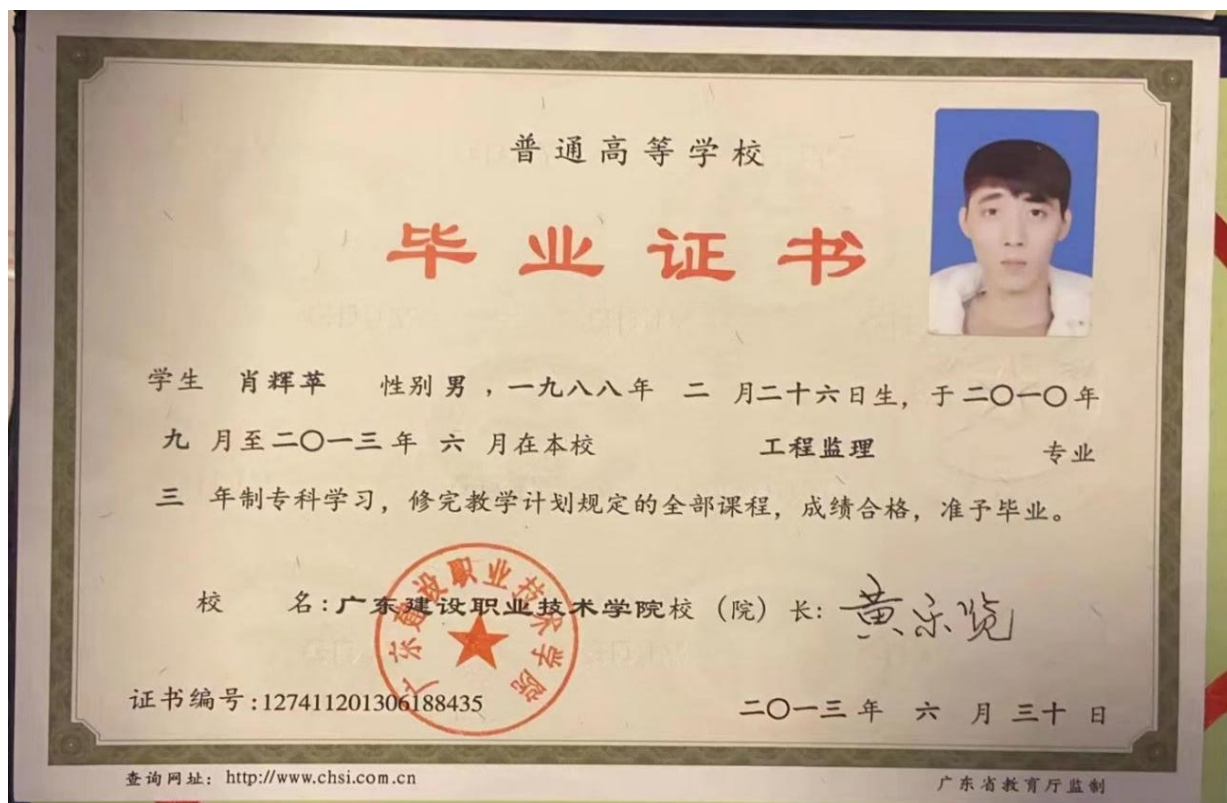 普通高等学校
毕业证书
学生 肖辉苹 性别 男 ，一九八八年 二 月二十六日生，于二〇一〇年
九 月至二〇一三年 六 月在本校 工程监理 专业
三 年制专科学习，修完教学计划规定的全部课程，成绩合格，准予毕业。
校 名：广东建设职业技术学院校（院）长：黄乐览
广东建设职业技术学院
证书编号：127411201306188435
二〇一三年 六 月三十日
查询网址：http://www.chsi.com.cn
广东省教育厅监制